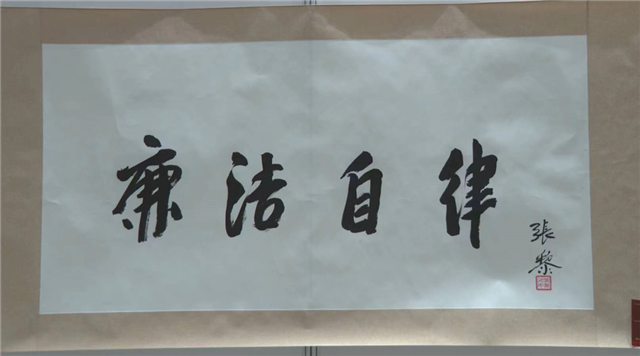 廉洁自律
張黎